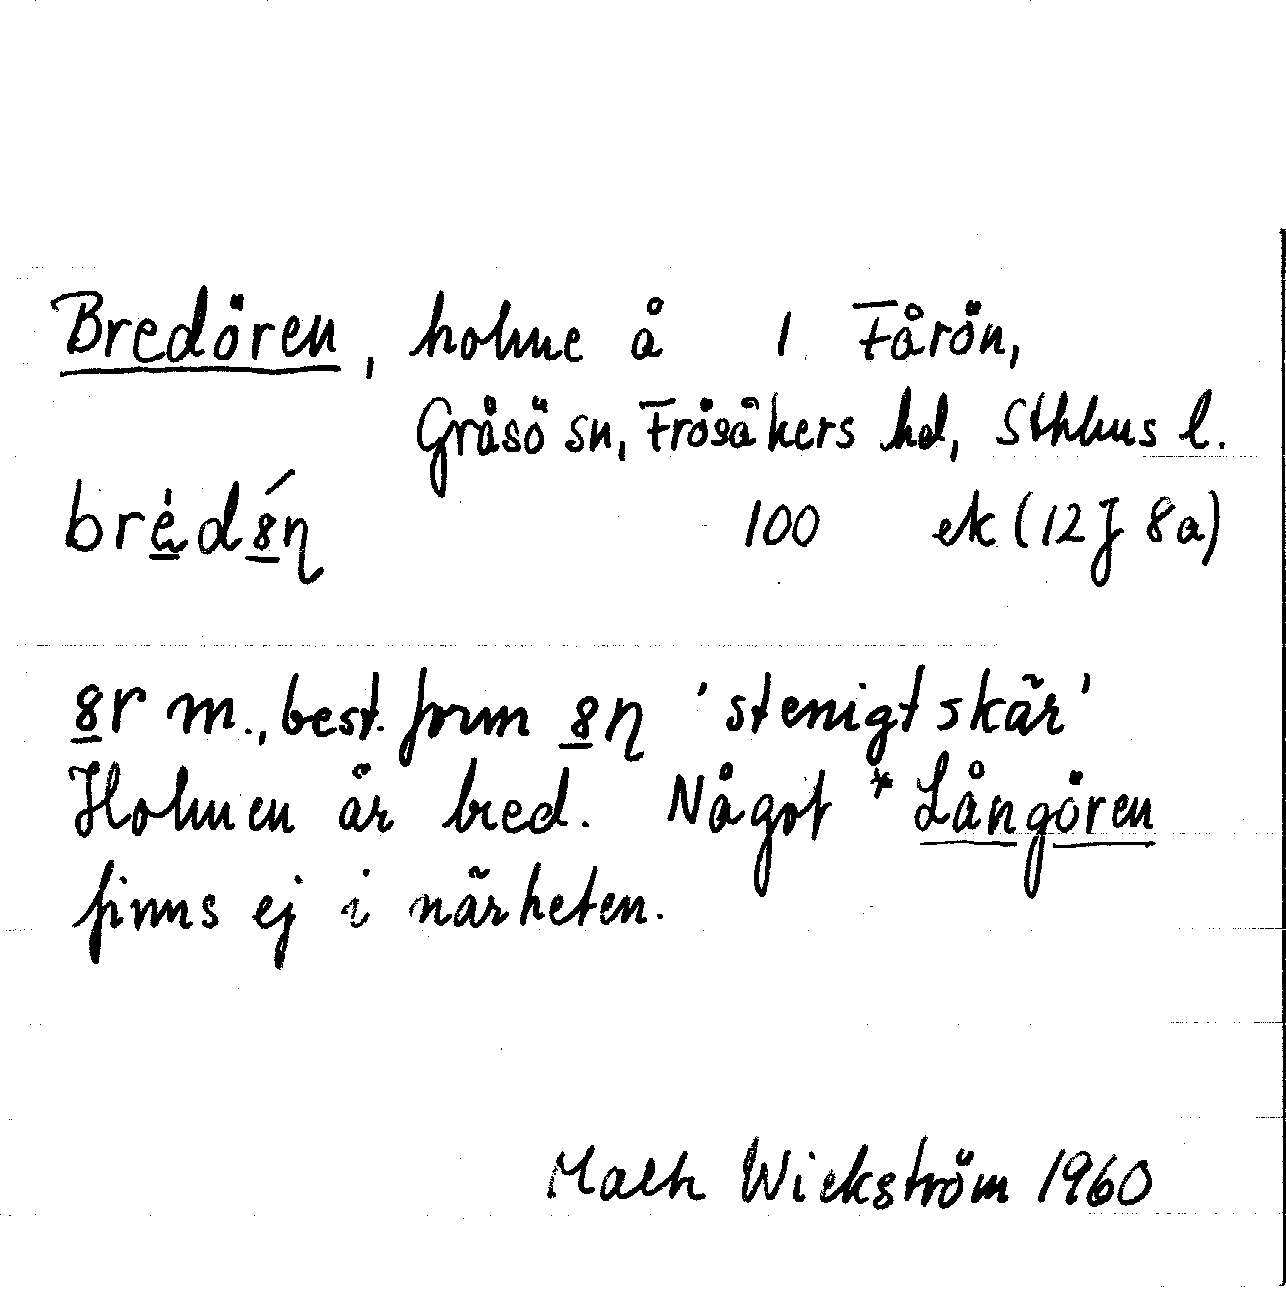 Bredören, holme å 1 Fårön,
Gräsö sn, Frösåkers hd, Sthlms l.
bredȣn 100 ek (12J 8a)
ȣr m., best. form ȣn 'stenigt skär'
Holmen är bred. Något *Långören
finns ej i närheten.
Wickström 1960